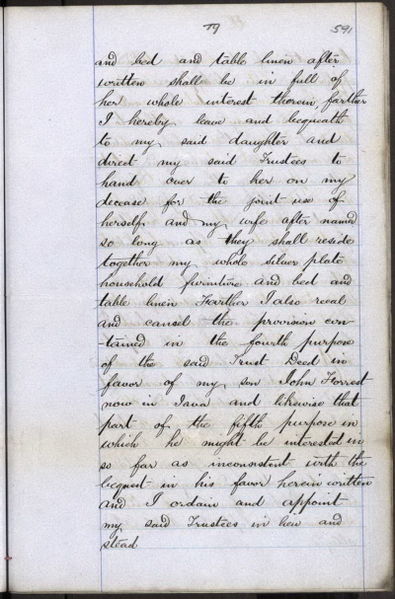 79 591
and bed and table linen after
written shall be in full of
her whole interest therein, farther
I hereby leave and bequeath
to my said daughter and
direct my said Trustees to
hand over to her on my
decease for the joint use of
herself and my wife after named
so long as they shall reside
together my whole silver plate
household furniture and bed and
table linen Farther I also recal
and cancel the provision con-
tained in the fourth purpose
of the said Trust Deed in
favor of my son John Forrest
now in Java and likewise that
part of the fifth purpose in
which he might be interested in
so far as inconsistent with the
bequest in his favor herein written
and I ordain and appoint
my said Trustees in lieu and
stead